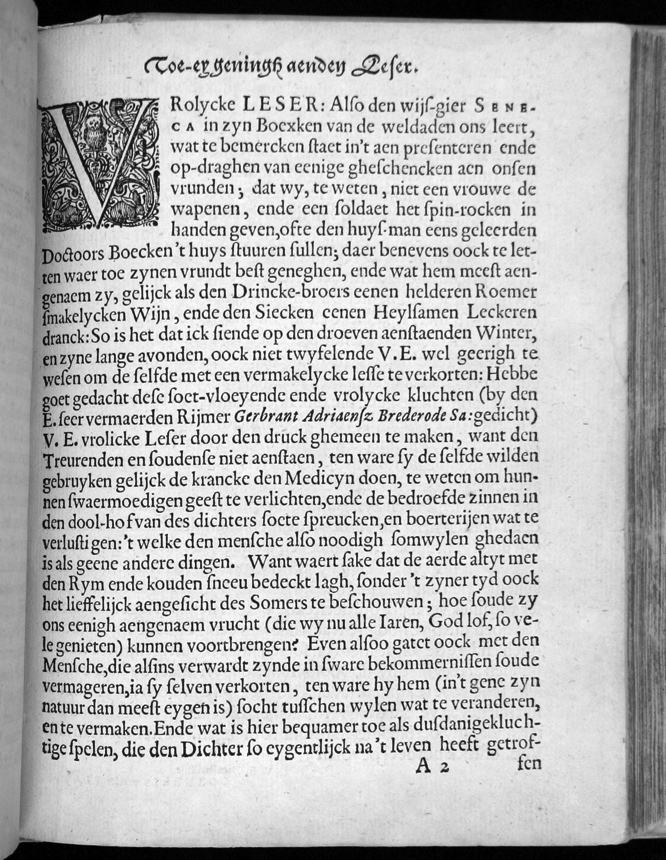 Toe-eygeningh aenden Leser.
VRolycke LESER: Alſo den wijſ-gier SENE-
CA in zyn Boexken van de weldaden ons leert,
wat te bemercken ſtaet in't aen preſenteren ende
op-draghen van eenige gheſchencken aen onſen
vrunden; dat wy, te weten, niet een vrouwe de
wapenen, ende een ſoldaet het ſpin-rocken in
handen geven, ofte den huyſ-man eens geleerden
Doctoors Boecken 't huys ſtuuren ſullen; daer benevens oock te let-
ten waer toe zynen vrundt beſt geneghen, ende wat hem meeſt aen-
genaem zy, gelijck als den Drincke-broers eenen helderen Roemer
ſmakelycken Wijn, ende den Siecken eenen Heylſamen Leckeren
dranck: So is het dat ick ſiende op den droeven aenſtaenden Winter,
en zyne lange avonden, oock niet twyfelende V.E. wel geerigh te
weſen om de ſelfde met een vermakelycke leſſe te verkorten: Hebbe
goet gedacht deſe ſoet-vloeyende ende vrolycke kluchten (by den
E. ſeer vermaerden Rijmer Gerbrant Adriaenſz Brederode Sa: gedicht)
V. E. vrolicke Leſer door den druck ghemeen te maken, want den
Treurenden en ſoudenſe niet aenſtaen, ten ware ſy de ſelfde wilden
gebruyken gelijck de krancke den Medicyn doen, te weten om hun-
nen ſwaermoedigen geeſt te verlichten, ende de bedroefde zinnen in
den dool-hof van des dichters ſoete ſpreucken, en boerterijen wat te
verluſtigen: 't welke den menſche alſo noodigh ſomwylen ghedaen
is als geene andere dingen. Want waert ſake dat de aerde altyt met
den Rym ende kouden ſneeu bedeckt lagh, ſonder 't zyner tyd oock
het lieffelijck aengeſicht des Somers te beſchouwen; hoe ſoude zy
ons eenigh aengenaem vrucht (die wy nu alle Iaren, God lof, ſo ve-
le genieten) kunnen voortbrengen? Even alſoo gatet oock met den
Menſche, die alſins verwardt zynde in ſware bekommerniſſen ſoude
vermageren, ia ſy ſelven verkorten, ten ware hy hem (in't gene zyn
natuur dan meeſt eygen is) ſocht tuſſchen wylen wat te veranderen,
en te vermaken. Ende wat is hier bequamer toe als duſdanige kluch-
tige ſpelen, die den Dichter ſo eygentlijck na't leven heeft getrof-
A 2 fen